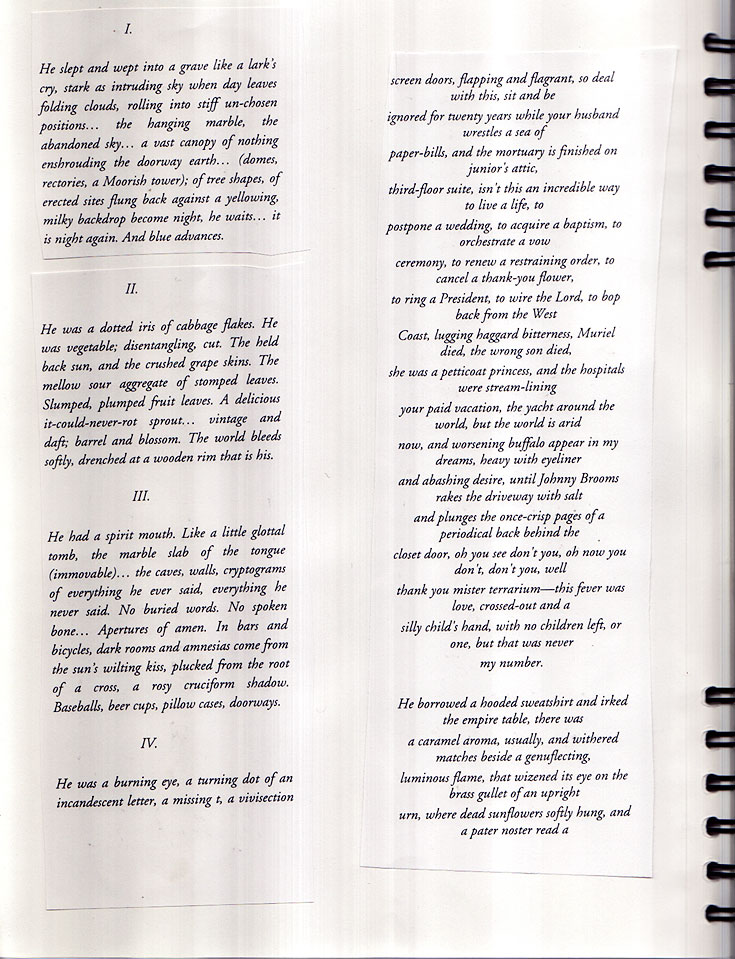 I.
He slept and wept into a grave like a lark's
cry, stark as intruding sky when day leaves
folding clouds, rolling into stiff un-chosen
positions... the hanging marble, the
abandoned sky... a vast canopy of nothing
enshrouding the doorway earth... (domes,
rectories, a Moorish tower); of tree shapes, of
erected sites flung back against a yellowing,
milky backdrop become night, he waits... it
is night again. And blue advances.
II.
He was a dotted iris of cabbage flakes. He
was vegetable; disentangling, cut. The held
back sun, and the crushed grape skins. The
mellow sour aggregate of stomped leaves.
Slumped, plumped fruit leaves. A delicious
it-could-never-rot sprout... vintage and
daft; barrel and blossom. The world bleeds
softly, drenched at a wooden rim that is his.
III.
He had a spirit mouth. Like a little glottal
tomb, the marble slab of the tongue
(immovable)... the caves, walls, cryptograms
of everything he ever said, everything he
never said. No buried words. No spoken
bone... Apertures of amen. In bars and
bicycles, dark rooms and amnesias come from
the sun's wilting kiss, plucked from the root
of a cross, a rosy cruciform shadow.
Baseballs, beer cups, pillow cases, doorways.
IV.
He was a burning eye, a turning dot of an
incandescent letter, a missing t, a vivisection
screen doors, flapping and flagrant, so deal
with this, sit and be
ignored for twenty years while your husband
wrestles a sea of
paper-bills, and the mortuary is finished on
junior's attic,
third-floor suite, isn't this an incredible way
to live a life, to
postpone a wedding, to acquire a baptism, to
orchestrate a vow
ceremony, to renew a restraining order, to
cancel a thank-you flower,
to ring a President, to wire the Lord, to bop
back from the West
Coast, lugging haggard bitterness, Muriel
died, the wrong son died,
she was a petticoat princess, and the hospitals
were stream-lining
your paid vacation, the yacht around the
world, but the world is arid
now, and worsening buffalo appear in my
dreams, heavy with eyeliner
and abashing desire, until Johnny Brooms
rakes the driveway with salt
and plunges the once-crisp pages of a
periodical back behind the
closet door, oh you see don't you, oh now you
don't, don't you, well
thank you mister terrarium—this fever was
love, crossed-out and a
silly child's hand, with no children left, or
one, but that was never
my number.
He borrowed a hooded sweatshirt and irked
the empire table, there was
a caramel aroma, usually, and withered
matches beside a genuflecting,
luminous flame, that wizened its eye on the
brass gullet of an upright
urn, where dead sunflowers softly hung, and
a pater noster read a